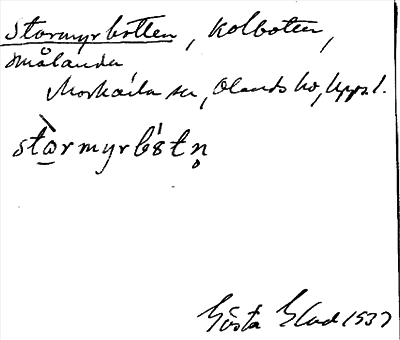 Stormyrbotten, Kolboten,
Smålanda
Morkarla sn, Olands hd, Uppl.
stòrmyrbótn̥
Gösta Elud 1937